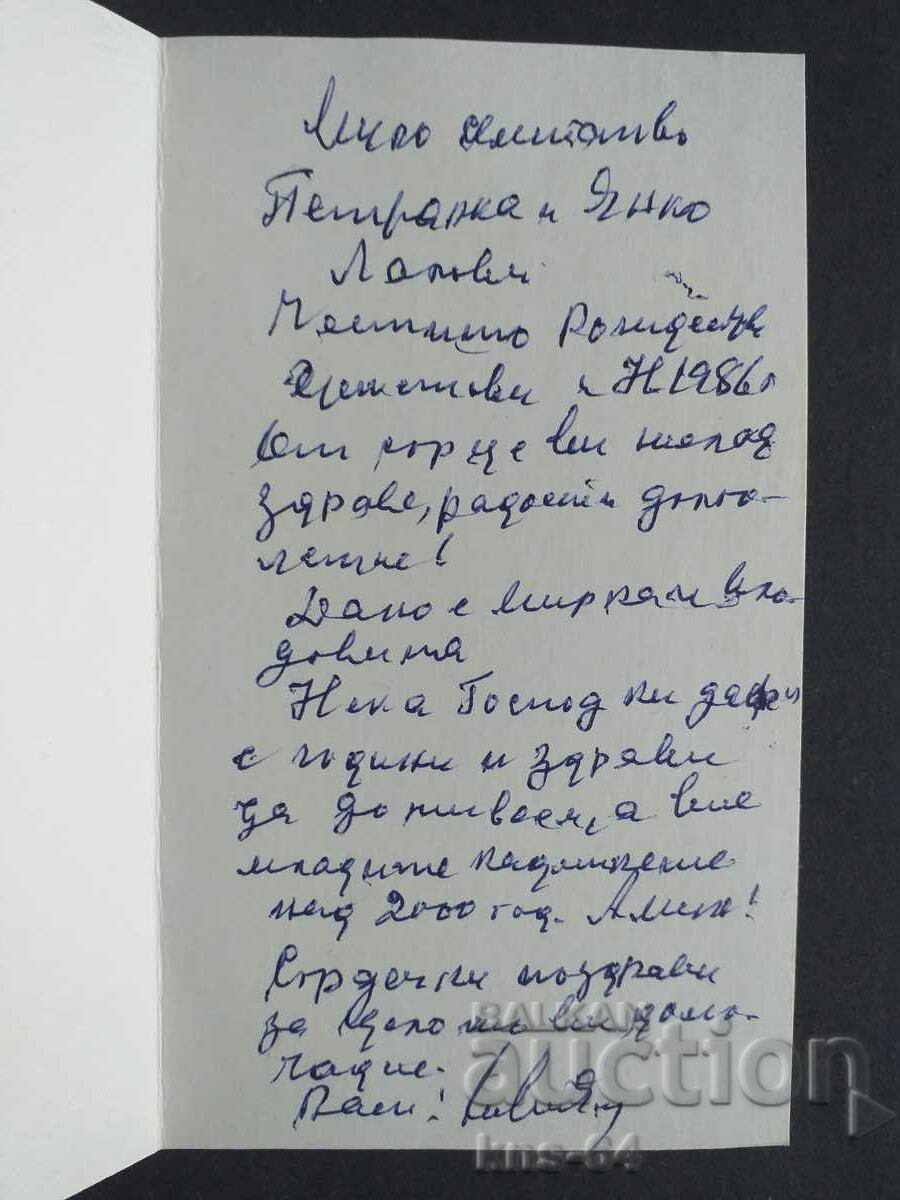 Мило семейство
Петранка и Янко
Лапови
Честито Рождество
Христово и Н 1986 г
От сърце ви желая
здраве, радости дълго-
летие!
Дано е мирна и пло-
довита
Нека Господ ни дари
с години и здрави
да доживеем, а вие
младите надживеете
над 2000 год. Амин!
Сърдечни поздрави
за цялото ви домо-
чадие.
Ваш:
BALKAN
auction
kns-64